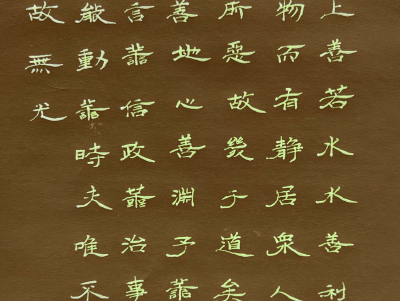 上善若水水善利
物而有静居眾人
所惡故幾于道矣
善地心善淵予譱
言譱信政譱治事
能動譱時夫唯不
故無尤